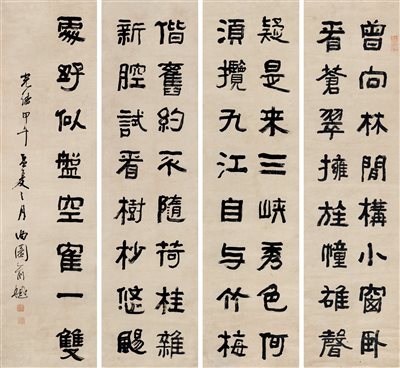 曾向林閒構小窗臥
看蒼翠擁旌幢雄聲
疑是来三峽秀色何
須攬九江自与竹梅
偕舊約不隨荷桂雜
新腔試看樹杪悠颺
處好似盤空隺一雙
光緒甲午孟夏之月曲園俞樾